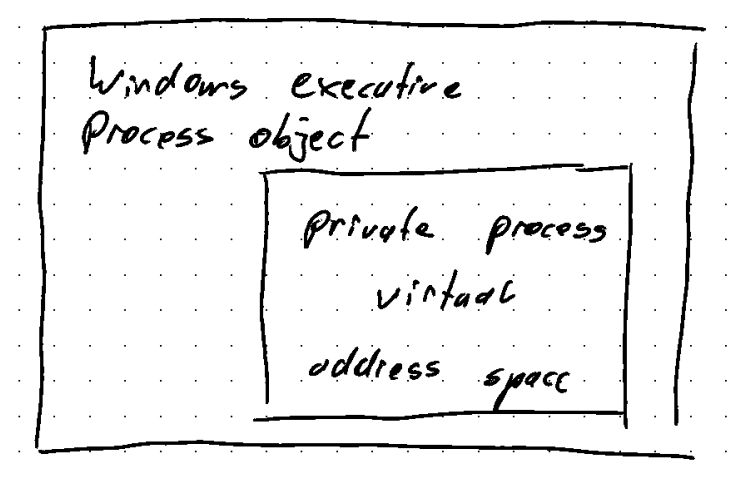 Windows executive
Process object
private process
virtual
address space